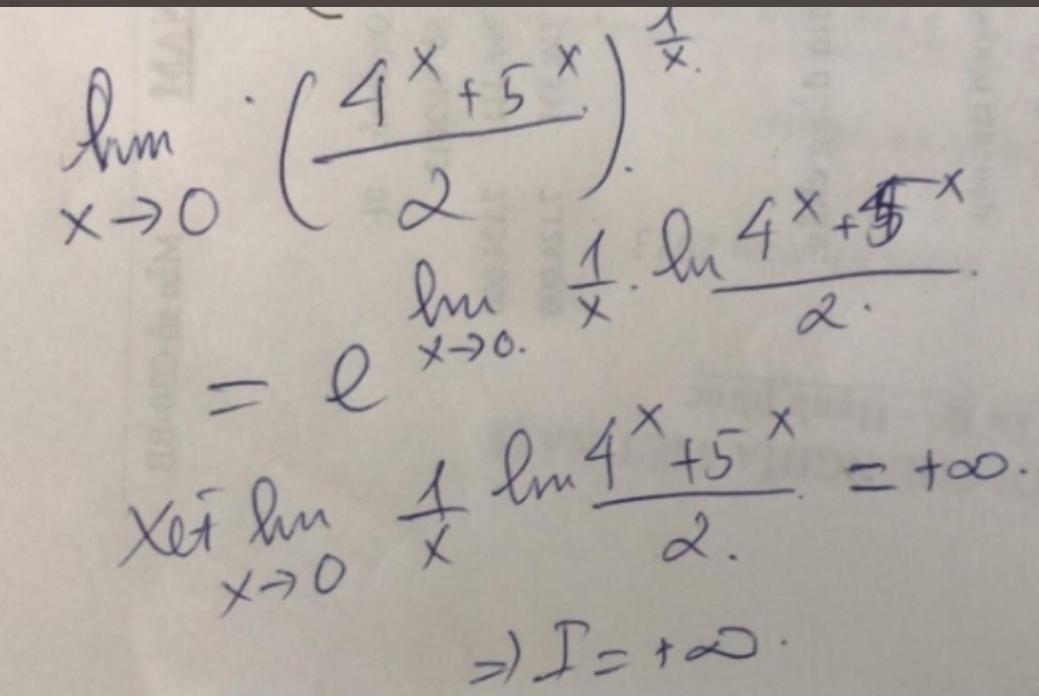 lim x→0 ((4^x + 5^x)/2)^(1/x).
= e^(lim x→0. 1/x . ln (4^x + 5^x)/2.)
Xét lim x→0 1/x ln (4^x + 5^x)/2. = +∞.
=> I = +∞.